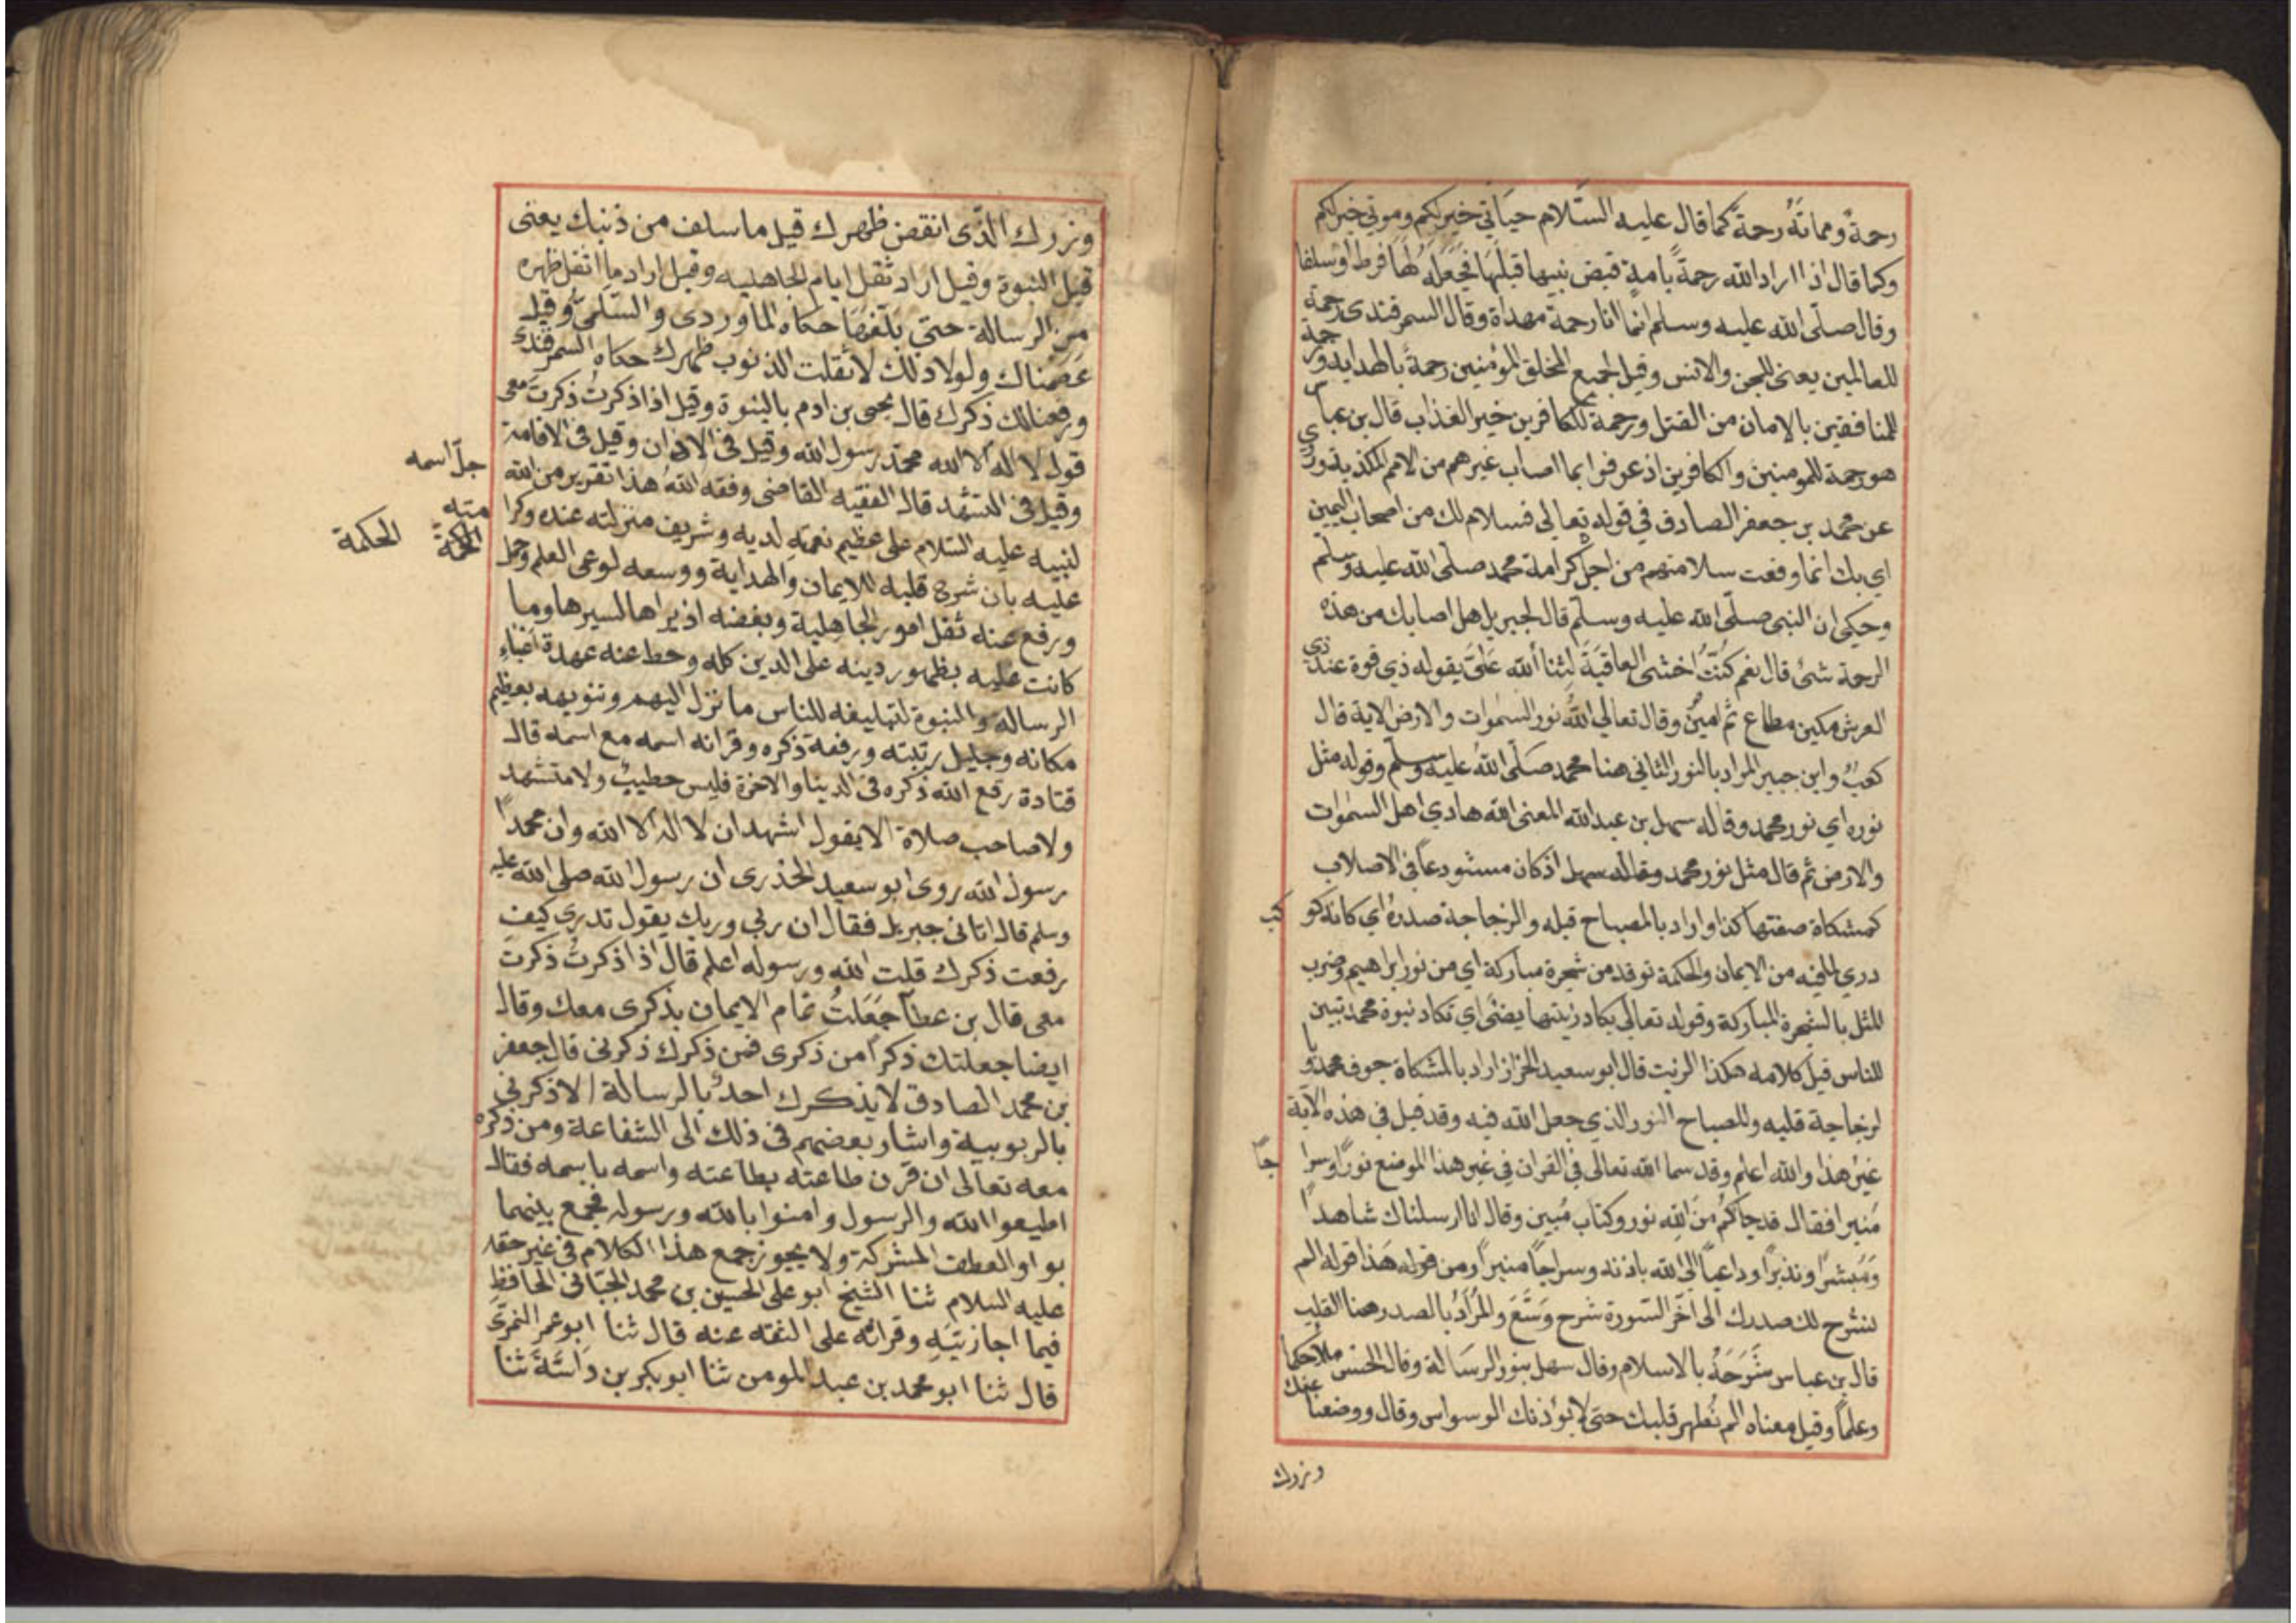 رحمةٌ ومماتَهُ رحمةٌ كما قال عليه السَّلام حيَاتي خير لكم وموتي خير لكم
وكما قال اذا اراد الله رحمةً بامةٍ قبض نبيها قبلَهَا فجَعَلَهُ لهَا فرطا وسلفا
وقال صلّى الله عليه وسلم انما انا رحمة مهداة وقال السمرقندى رحمة
للعالمين يعنى للجن والانس وقيل لجميع الخلق للمؤمنين رحمةً بالهداية ورحمة
للمنافقين بالامان من القتل ورحمة للكافرين خير العذاب قال بن عباس
هو رحمة للمومنين والكافرين اذ عوفوا بما اصاب غيرهم من الامم المكذبة وروي
عن محمد بن جعفر الصادق في قوله تعالى فسلام لك من اصحاب اليمين
اي بك انما وقعت سلامتهم من اجل كرامة محمد صلّى الله عليه وسلم
وحكى ان النبى صلّى الله عليه وسلّم قال لجبريل هل اصابك من هذه
الرحمة شئ قال نعم كُنتُ اخشى العاقبَةَ لِثنا الله عَلىَّ بقوله ذي قوة عند ذي
العرش مكين مطاع ثم امينٌ وقال تعالى اللهُ نور السمٰوات والارض الاية قال
كعبٌ وابن جبير المراد بالنور الثاني هنا محمد صَلّى اللهُ عليه وسلّم وقوله مثل
نوره اي نور محمد وقاله سهل بن عبد الله المعنى الله هادي اهل السمٰوات
والارض ثم قال مثل نور محمد وقاله سهل اذ كان مستودعاً في الاصلاب
كمشكاة صفتها كذا واراد بالمصباح قلبه والزجاجة صدرهُ اي كانه كو كب
دري لما فيه من الايمان والحكمة توقد من شجرة مباركة اي من نور ابراهيم وضرب
المثل بالشجرة المباركة وقوله تعالى يكاد زيتها يضئ اي تكاد نبوة محمد تبين
للناس قبل كلامه هكذا الزيت قال ابو سعيد الخراز اراد بالمشكاة جوف محمد وا
لزجاجة قلبه والمصباح النور الذي جعل الله فيه وقد قيل في هذه الآية
غيرُ هذا والله اعلم وقد سما الله تعالى في القران في غير هذا الموضع نورًا وسرا جاً
مُنيرا فقال قد جاكُم مّنَ اللهِ نور وكتاب مُبين وقال انا ارسلناك شاهداً
وَمُبشرًا ونذيرًا وداعيًا الى الله باذنه وسراجاً منيراً ومن قوله هَذا قوله الم
نشرح لك صدرك الى اخر السّورة شرح وَسَّعَ والمُرَادُ بالصدر هنا القلب
قال بن عباس شَرَحَهُ بالاسلام وقال سهل بنور الرسَالة وقال الحسن ملأ حكما
وعلماً وقيل معناه الم نُطهر قلبك حتى لا يؤذنك الوسواس وقال ووضعنا عنك
وزرك
وزرك الّذى انقض ظهرك قيل ما سلف من ذنبك يعنى
قبل النبوة وقيل اراد ثقل ايام الجاهليه وقيل اراد ما اثقل ظهره
من الرسالة حتى بلّغهَا حكاه الماوردى والسّلمىُّ وقيل
عَصَمناك ولولا ذلك لأثقلت الذنوب ظهرك حكاه السمرقندى
ورفعنا لك ذكرك قال يحيى بن ادم بالنبوة وقيل اذا ذكرتُ ذكرتَ معى
قول لا اله الا الله محمّد رسول الله وقيل فى الاذان وقيل فى الاقامة
وقيل فى التشهد قال الفقيه القاضى وفقه اللهُ هذا تقرير من الله
جلّ اسمه
لنبيه عليه السّلام على عظيم نعمهِ لديه وشريف منزلته عنده وكرا
مته
عليه بان شرح قلبه للايمان والهداية ووسعه لوعى العلم وحمل
الحكمة
الحكمة
ورفع عنه ثقل امور الجاهلية وبغضه اذيراها لسيرها وما
كانت عليه بظهور دينه على الدين كله وحط عنه عهدة اعباءِ
الرساله والنبوة لتبليغه للناس ما نزل اليهم وتنويهه بعظيم
مكانه وجليل رتبته ورفعة ذكره وقرانه اسمه مع اسمه قال
قتادة رفع الله ذكره فى الدينا والاخرة فليس خطيبٌ ولا متشهد
ولا صاحب صلاة الا يقول اشهد ان لا اله الا الله وان محمداً
رسول الله روى ابو سعيد الخذرى ان رسول الله صلى الله عليه
وسلم قال اتانى جبريل فقال ان ربي وربك يقول تدرى كيف
رفعت ذكرك قلت الله ورسوله اعلم قال اذا ذكرتُ ذكرتَ
معى قال بن عطآ جَعَلتُ تمام الايمان بذكرى معك وقال
ايضا جعلتك ذكراً من ذكرى فمن ذكرك ذكرنى قال جعفر
بن محمد الصادق لا يذكرك احدٌ بالرسالة الا ذكرني
بالربوبية واشار بعضهم فى ذلك الى الشفاعة ومن ذكره
معه تعالى ان قرن طاعته بطاعته واسمه باسمه فقال
اطيعوا الله والرسول وامنوا بالله ورسوله فجمع بينهما
بواو العطف المشركة ولا يجوز جمع هذا الكلام فى غير حقه
عليه السلام ثنا الشيخ ابو على الحسين بن محمد الجبّانى الحافظ
فيما اجازنيَهِ وقراتُه على الثقه عنه قال ثنا ابو عمر النمرىّ
قال ثنا ابو محمد بن عبد المومن ثنا ابو بكر بن دَاسَّةَ ثنا